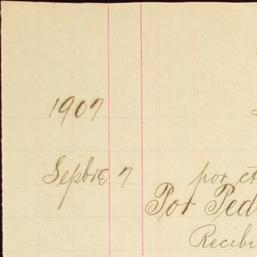 1907
Sepbre 7 por ct
Por Ped
Recibi